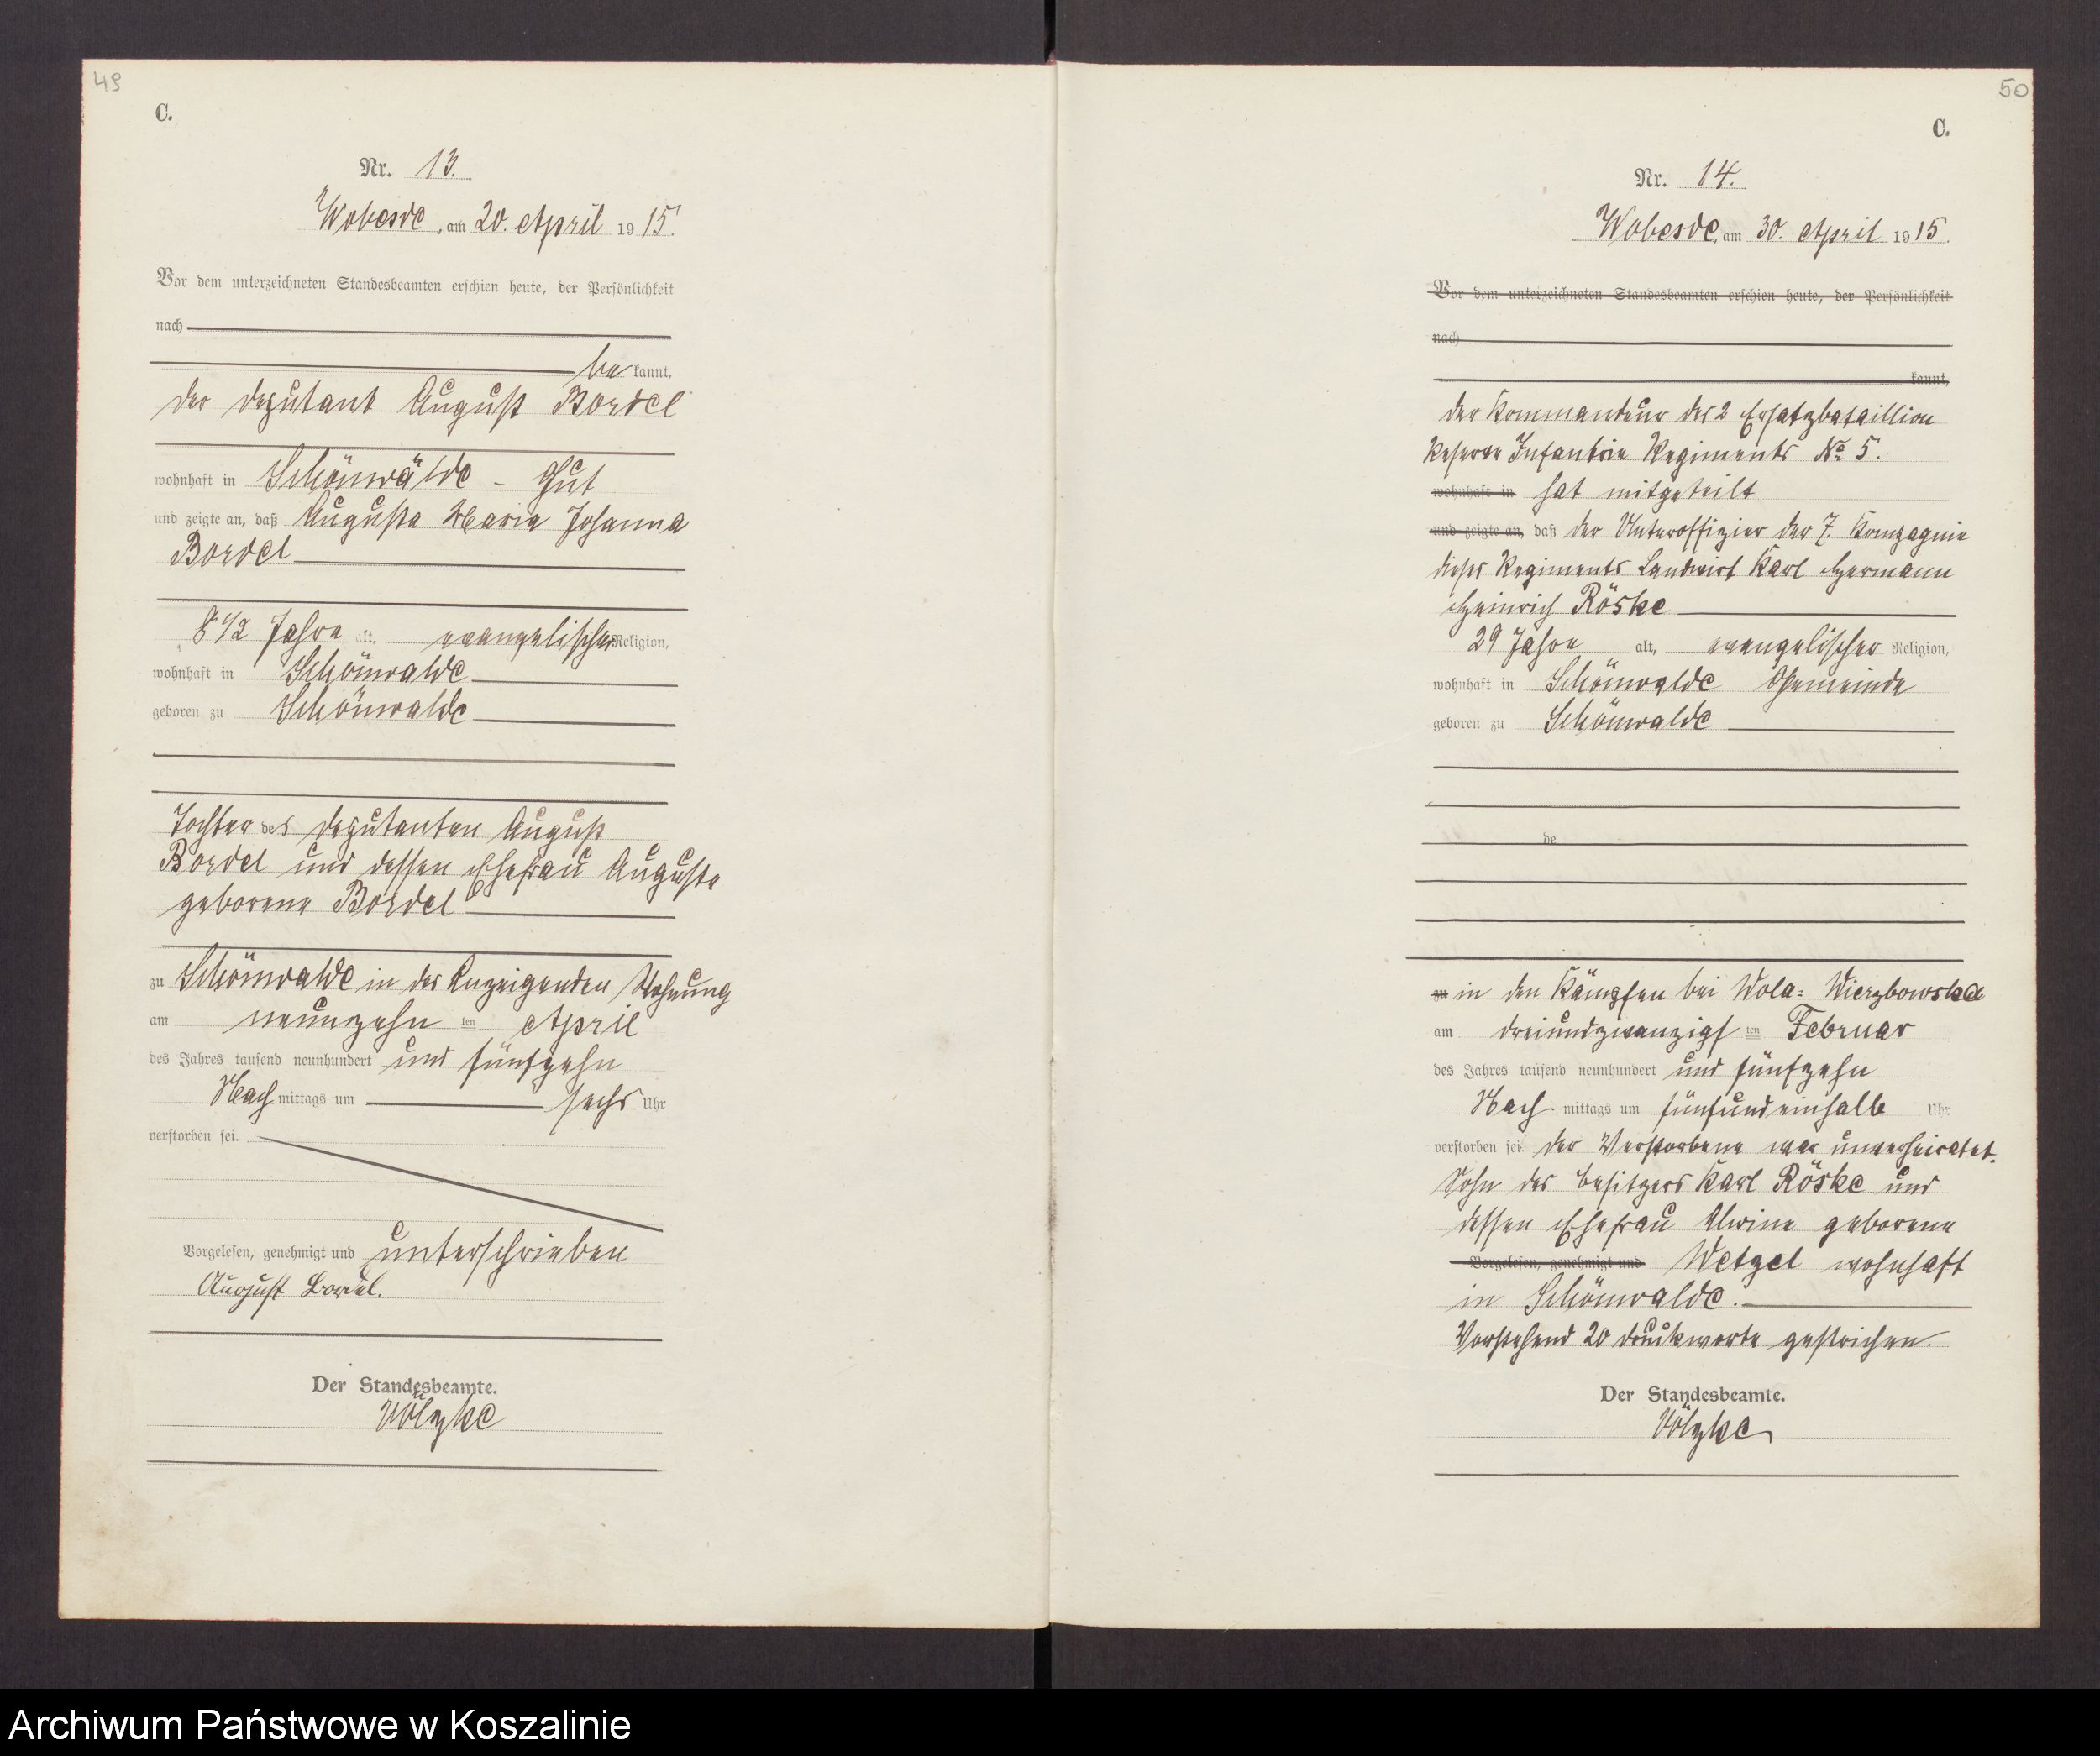 49
C.
Nr. 13.
Wobesde, am 20. April 1915.
Vor dem unterzeichneten Standesbeamten erschien heute, der Persönlichkeit
nach
be kannt,
der Deputant August Bordel
wohnhaft in Schönwalde - Gut
und zeigte an, daß Augusta Maria Johanna
Bordel
8 1/2 Jahre alt, evangelischer Religion,
wohnhaft in Schönwalde
geboren zu Schönwalde
Tochter des Deputanten August
Bordel und dessen Ehefrau Auguste
geborene Bordel
zu Schönwalde in des Anzeigenden Wohnung
am neunzehn ten April
des Jahres tausend neunhundert und fünfzehn
Nach mittags um sechs Uhr
verstorben sei.
Vorgelesen, genehmigt und unterschrieben
August Bordel.
Der Standesbeamte.
Völzke
50
C.
Nr. 14.
Wobesde, am 30. April 1915.
Vor dem unterzeichneten Standesbeamten erschien heute, der Persönlichkeit
nach
kannt,
der Kommandeur des 2 Ersatzbataillion
Reserve Infantrie Regiments No 5.
wohnhaft in hat mitgeteilt
und zeigte an, daß der Unteroffizier der 7. Kompagnie
dieses Regiments Landwirt Karl Hermann
Heinrich Röske
29 Jahre alt, evangelischer Religion,
wohnhaft in Schönwalde Gemeinde
geboren zu Schönwalde
de
zu in den Kämpfen bei Wola= Wierzbowska
am dreiundzwanzigs ten Februar
des Jahres tausend neunhundert und fünfzehn
Nach mittags um fünfundeinhalb Uhr
verstorben sei. Der Verstorbene war unverheiratet.
Sohn des Besitzers Karl Röske und
dessen Ehefrau Alwine geborene
Vorgelesen, genehmigt und Wetzel wohnhaft
in Schönwalde.
Vorstehend 20 Druckworte gestrichen.
Der Standesbeamte.
Völzke
Archiwum Państwowe w Koszalinie